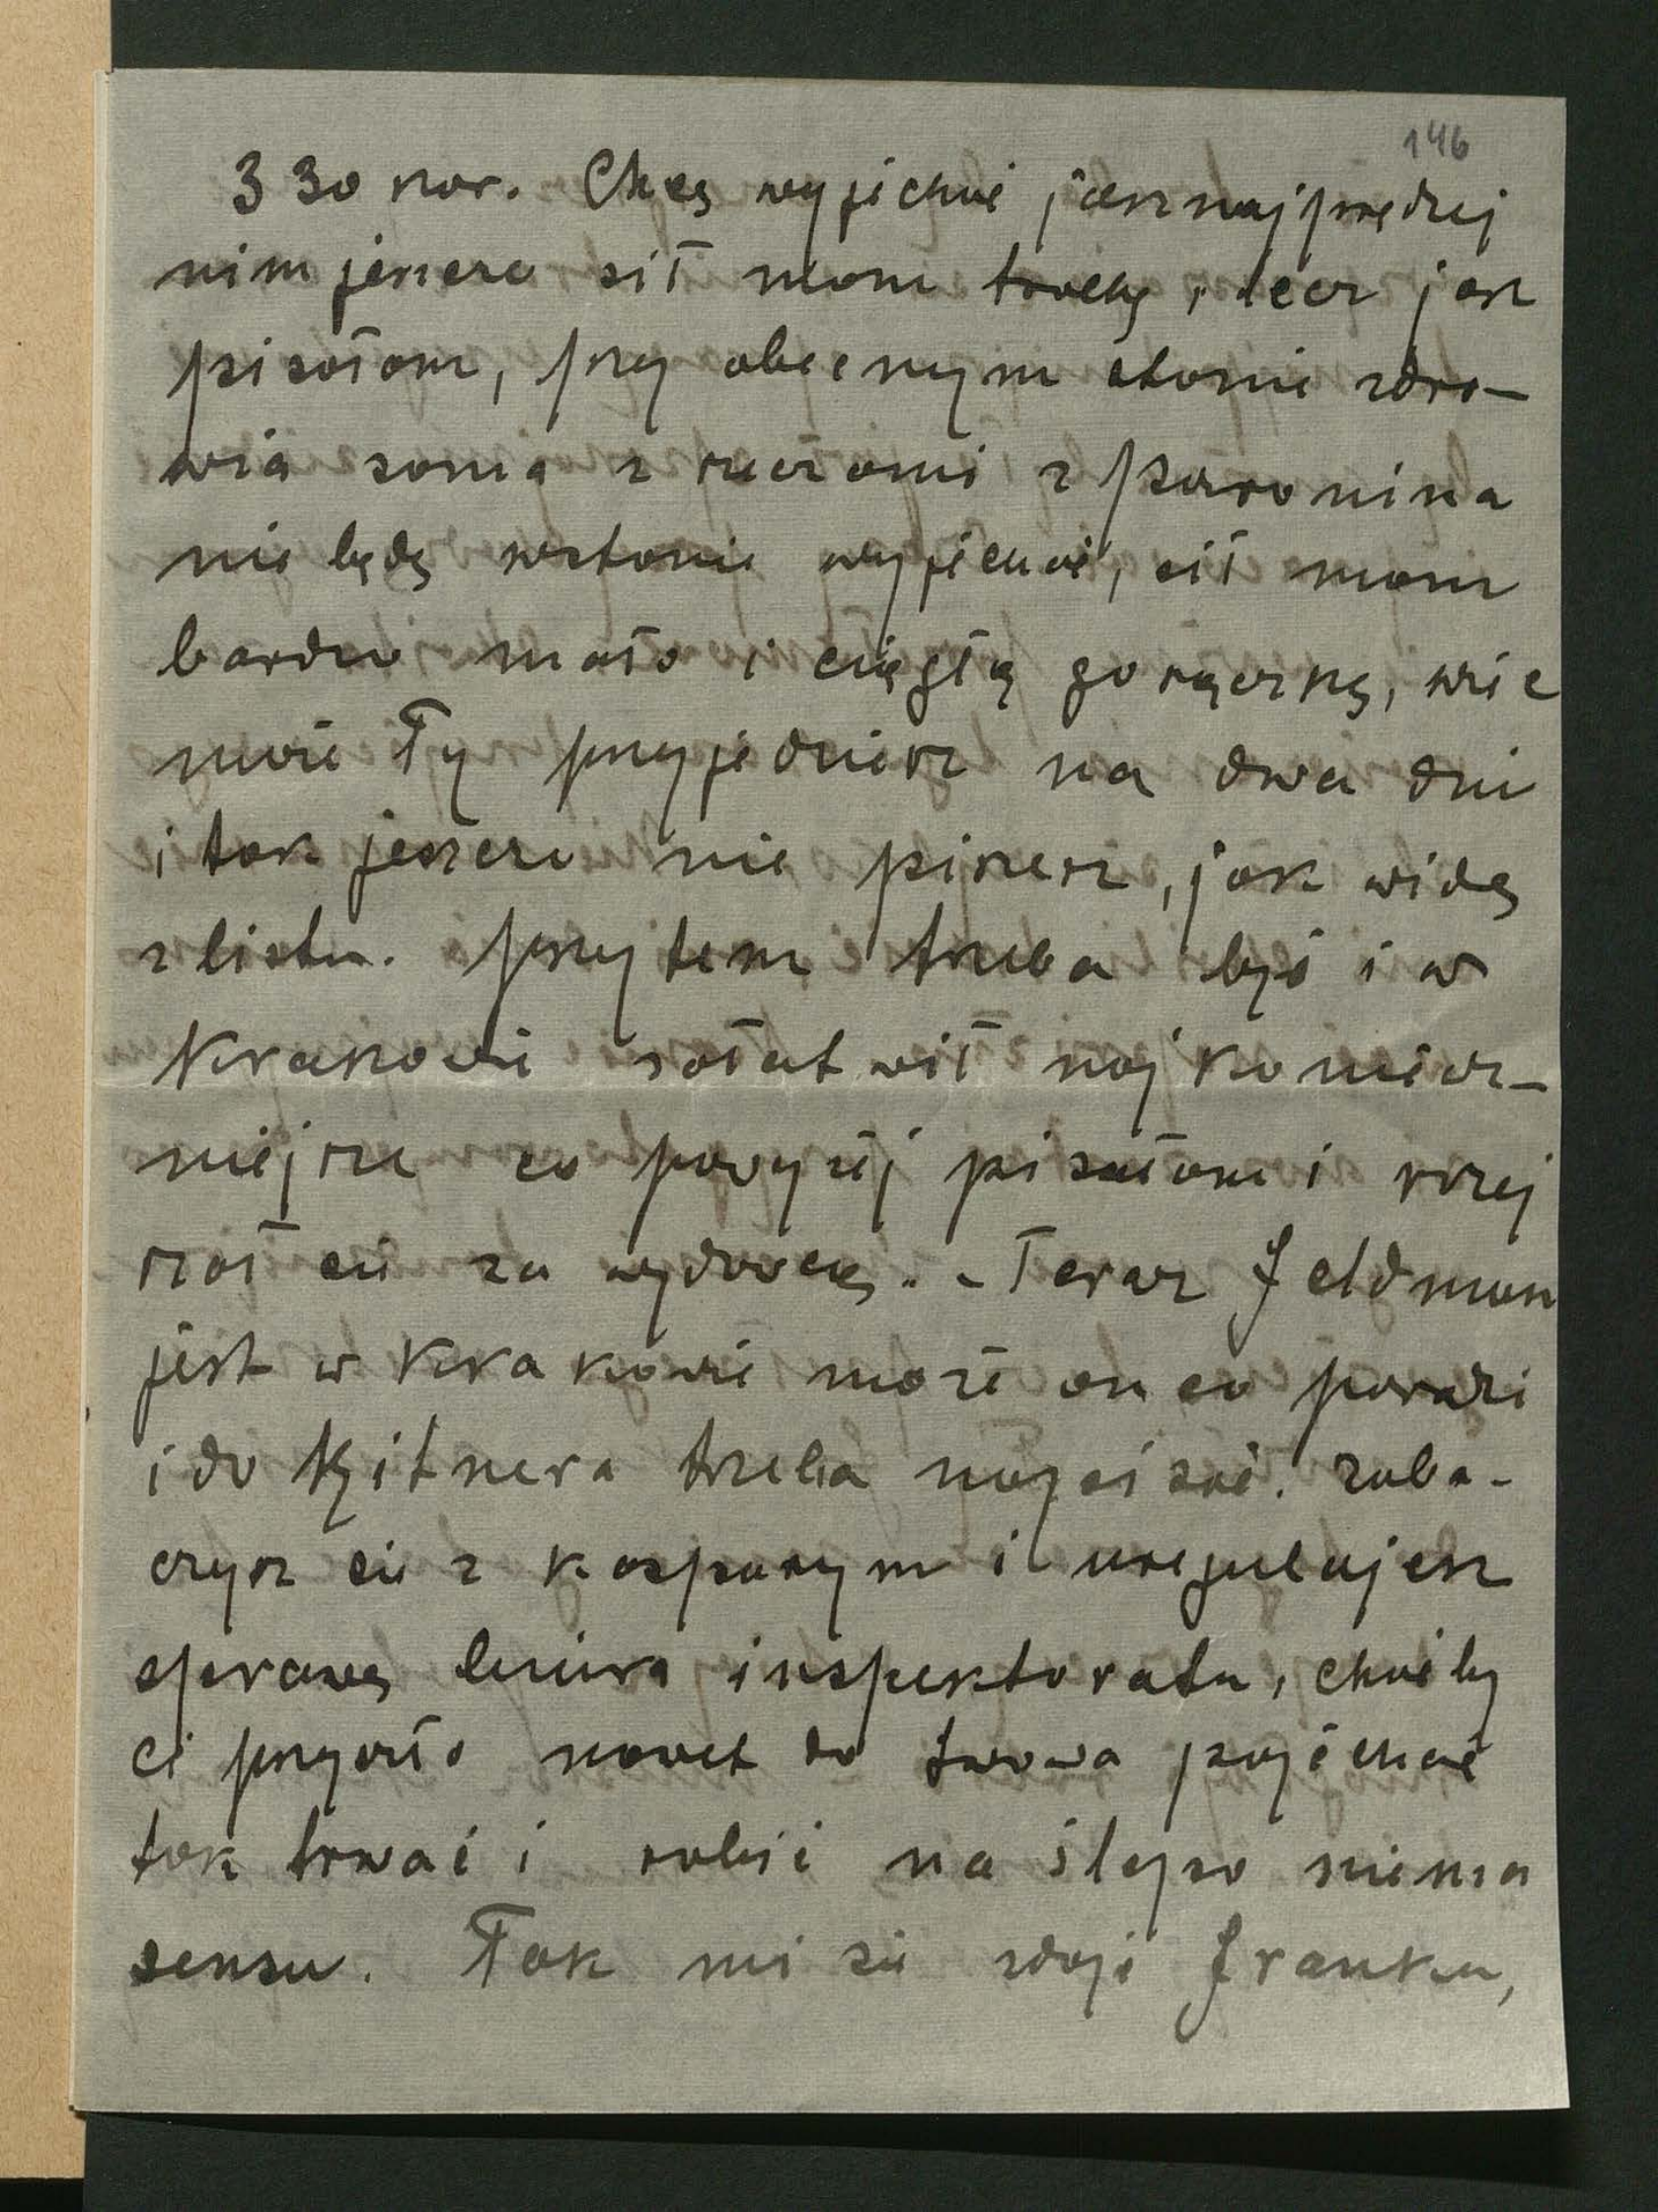 146
330 kor. Chcę wyjechać jaknajprędzej
nim jeszcze sił mam trochę, lecz jak
pisałam, przy obecnym stanie zdro-
wia sama z rzeczami z Poronina
nie będę wstanie wyjechać, sił mam
bardzo mało i ciągłą gorączkę, więc
może Ty przyjedziesz na dwa dni
i tak jeszcze nie piszesz, jak widzę
z listu. Przytem trzeba być i w
Krakowie załatwić najkoniecz-
niejsze co powyżej pisałam i rozej
rzeć się za wydawcą. - Teraz Feldman
jest w Krakowie może on co poradzi
i do Kitnera trzeba napisać. Zoba-
czysz się z Kasparym i uregulujesz
sprawę biura inspektoratu, choćby
ci przyszło nawet do Lwowa pojechać
tak trwać i robić na ślepo niema
sensu. Tak mi się zdaje Franku,